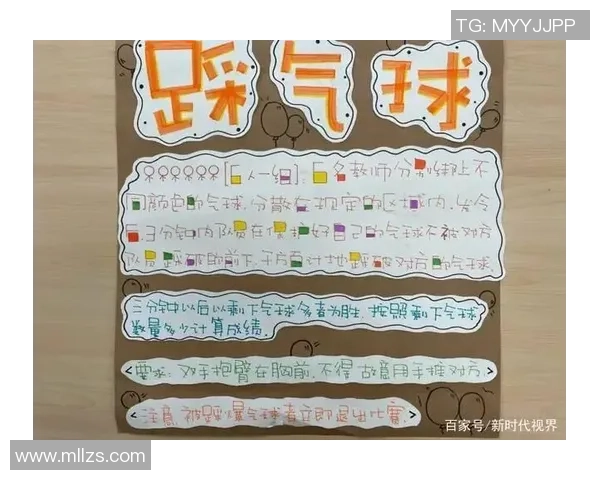 TG: MYYJJPP
踩气球
[6人一组]: 6名教师分别绑上不
同颜色的气球,分散在规定的区域内,发令
后,3分钟内队员在保护好自己的气球不被对方
队员踩破的前下,千方百计地踩破对方的气球.
三分钟以后以剩下气球多者为胜,按照剩下气球
数量多少计算成绩.
要求:双手抱臂在胸前,不得故意用手推对方
注意,被踩爆气球者立即退出比赛.
百家号/新时代视界
www.mllzs.com